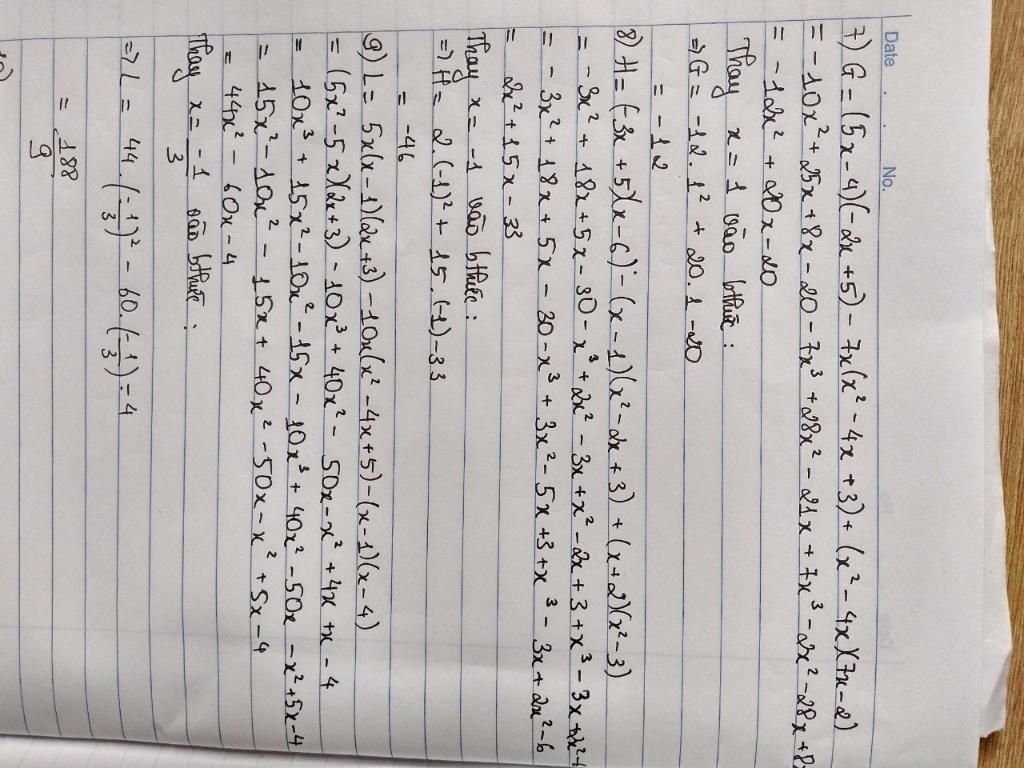 Date . . No.
7) G = (5x - 4)(-2x + 5) - 7x(x² - 4x + 3) + (x² - 4x)(7x - 2)
= -10x² + 25x + 8x - 20 - 7x³ + 28x² - 21x + 7x³ - 2x² - 28x + 8x
= -12x² + 20x - 20
Thay x = 1 vào bthức :
⇒ G = -12 . 1² + 20 . 1 - 20
= -12
8) H = (-3x + 5)(x - 6) - (x - 1)(x² - 2x + 3) + (x + 2)(x² - 3)
= -3x² + 18x + 5x - 30 - x³ + 2x² - 3x + x² - 2x + 3 + x³ - 3x + 2x² - 6
= -3x² + 18x + 5x - 30 - x³ + 3x² - 5x + 3 + x³ - 3x + 2x² - 6
= 2x² + 15x - 33
Thay x = -1 vào bthức :
⇒ H = 2 . (-1)² + 15 . (-1) - 33
= -46
9) L = 5x(x - 1)(2x + 3) - 10x(x² - 4x + 5) - (x - 1)(x - 4)
= (5x² - 5x)(2x + 3) - 10x³ + 40x² - 50x - x² + 4x + x - 4
= 10x³ + 15x² - 10x² - 15x - 10x³ + 40x² - 50x - x² + 5x - 4
= 15x² - 10x² - 15x + 40x² - 50x - x² + 5x - 4
= 44x² - 60x - 4
Thay x = -1/3 vào bthức :
⇒ L = 44 . (-1/3)² - 60 . (-1/3) - 4
= 188/9